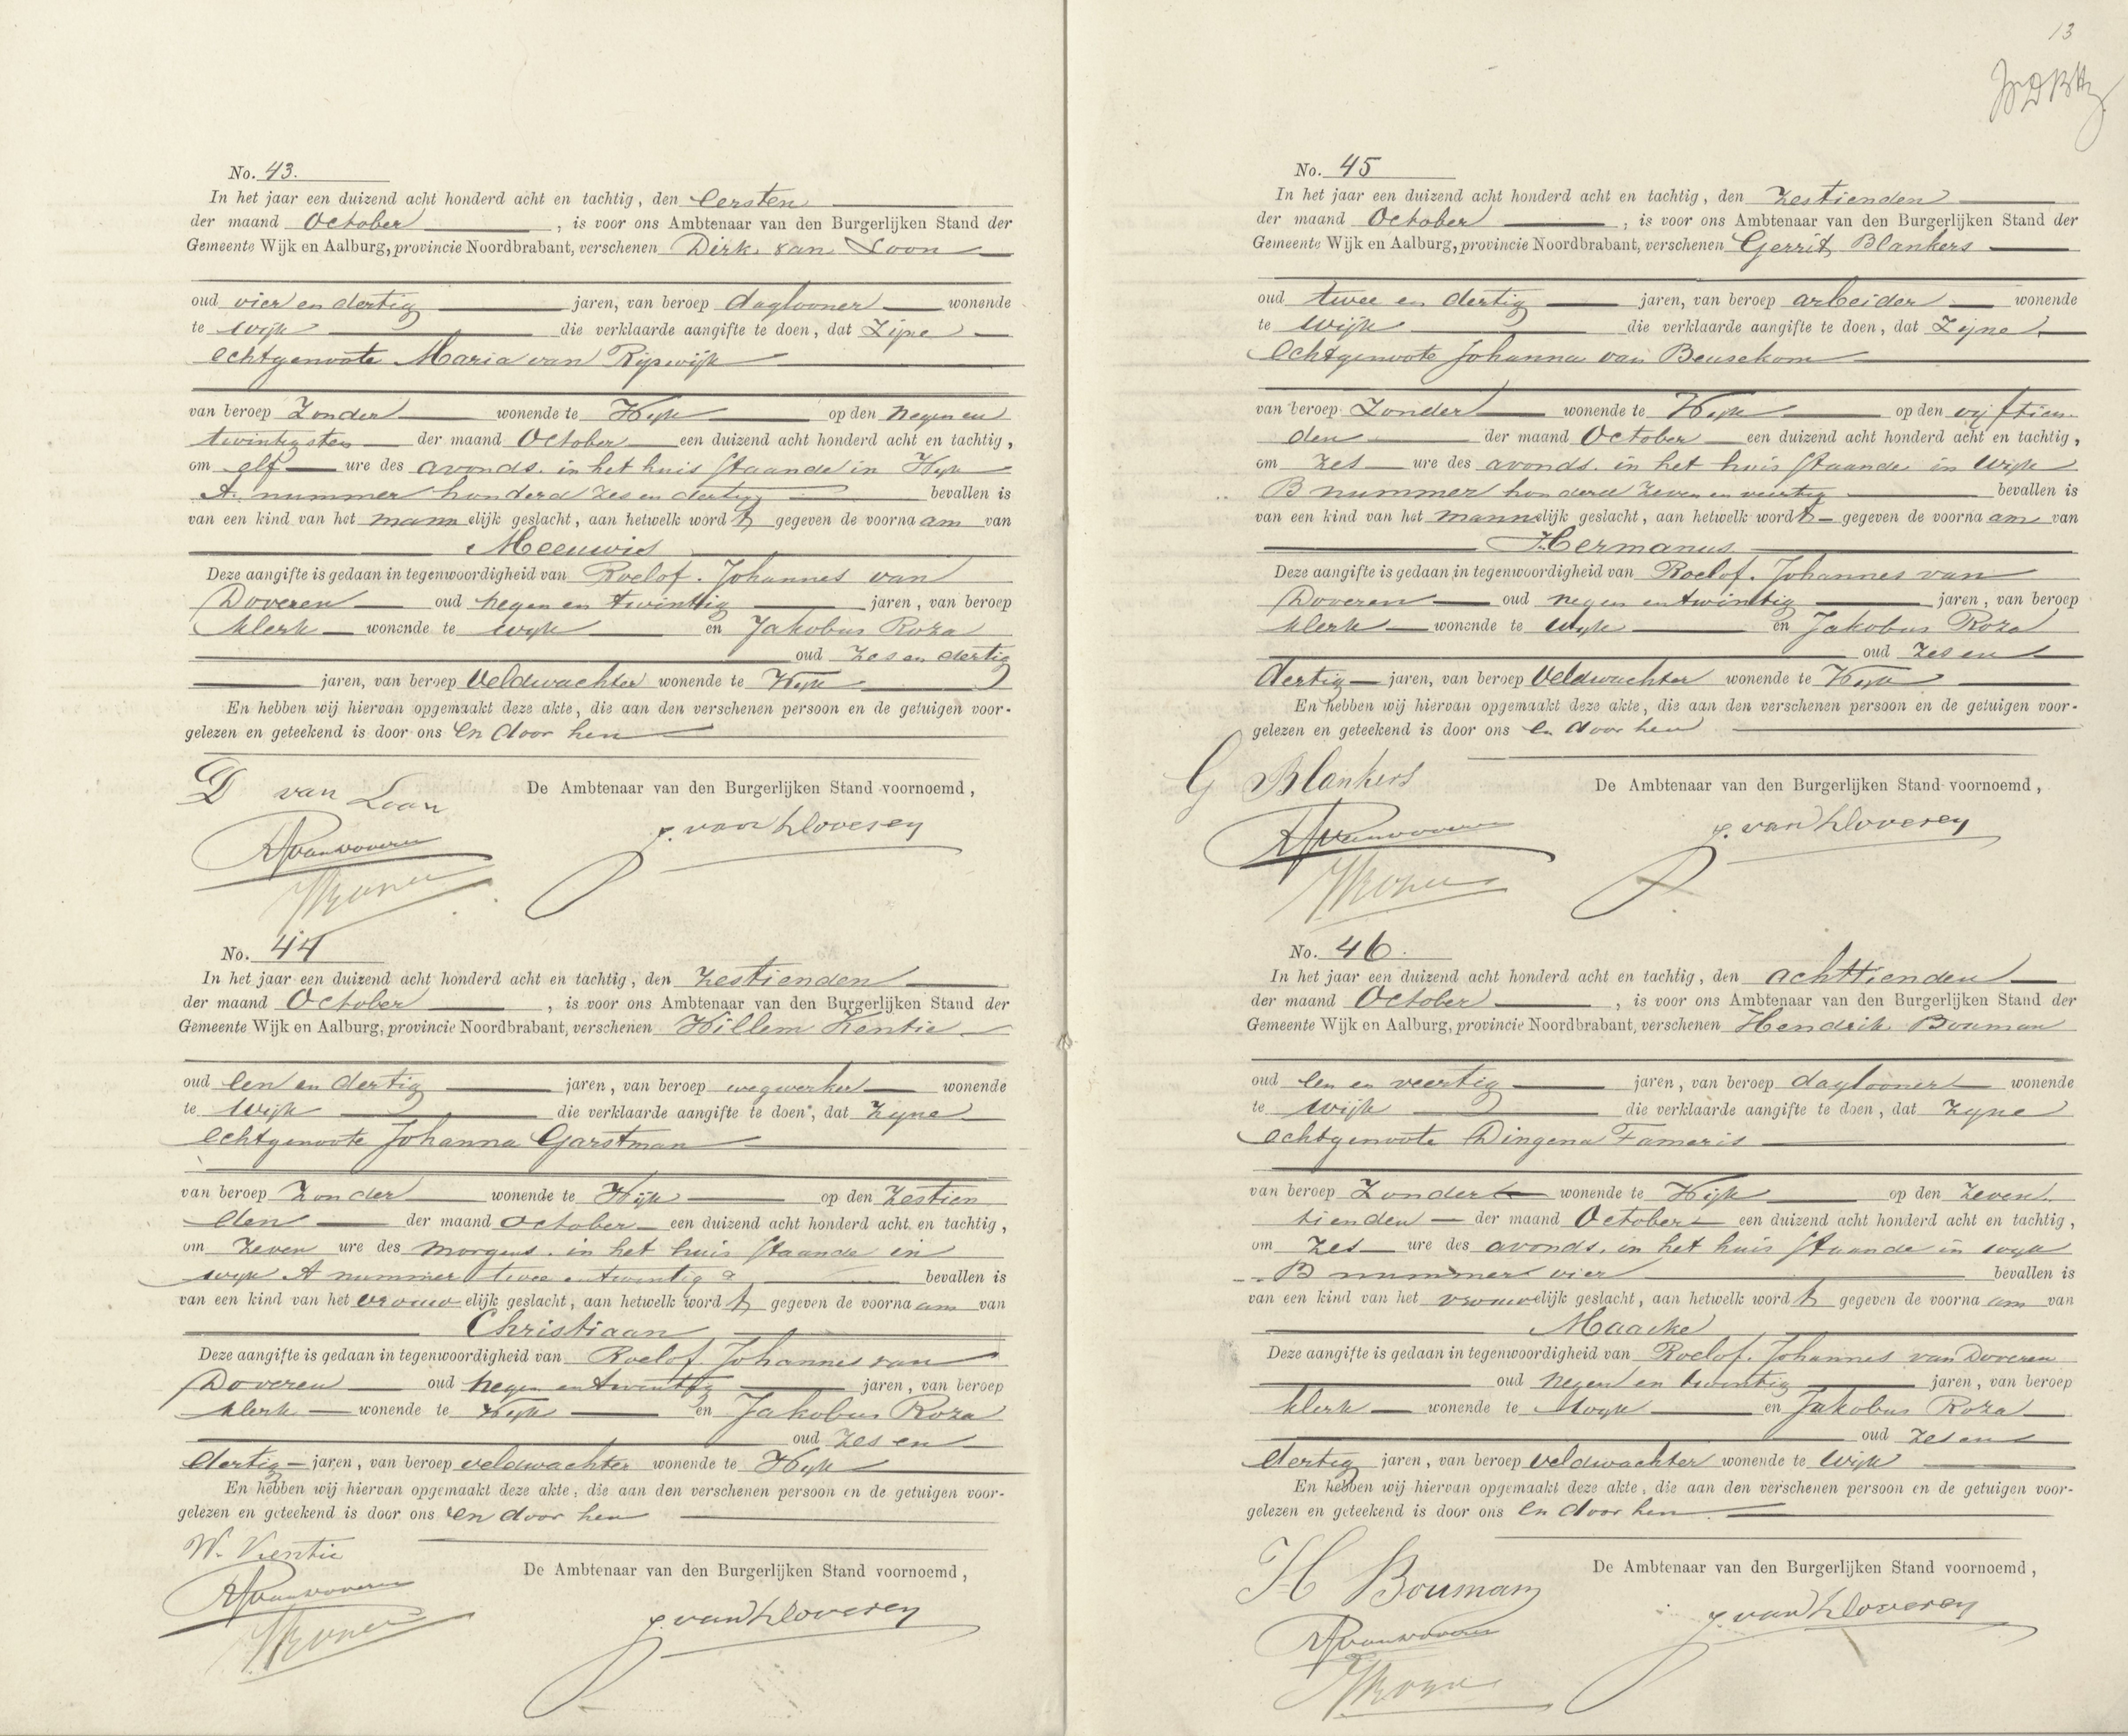 No. 43.
In het jaar een duizend acht honderd acht en tachtig, den Eersten
der maand October, is voor ons Ambtenaar van den Burgerlijken Stand der
Gemeente Wijk en Aalburg, provincie Noordbrabant, verschenen Dirk van Loon
oud vier en dertig jaren, van beroep daglooner wonende
te Wijk die verklaarde aangifte te doen, dat Zijne
echtgenoote Maria van Rijswijk
van beroep Zonder wonende te Wijk op den negen en
twintigsten der maand October een duizend acht honderd acht en tachtig,
om elf ure des avonds. in het huis staande in Wijk
A. nummer honderd zes en dertig bevallen is
van een kind van het mannelijk geslacht, aan hetwelk wordt gegeven de voornaam van
Meeuwis
Deze aangifte is gedaan in tegenwoordigheid van Roelof. Johannes van
Doveren oud negen en twintig jaren, van beroep
klerk wonende te Wijk en Jakobus Roza
oud zes en dertig
jaren, van beroep Veldwachter wonende te Wijk
En hebben wij hiervan opgemaakt deze akte, die aan den verschenen persoon en de getuigen voor-
gelezen en geteekend is door ons en door hen
D van Loon
De Ambtenaar van den Burgerlijken Stand voornoemd,
RJvandoveren
J. van Doveren
JRoza
No. 44
In het jaar een duizend acht honderd acht en tachtig, den Zestienden
der maand October, is voor ons Ambtenaar van den Burgerlijken Stand der
Gemeente Wijk en Aalburg, provincie Noordbrabant, verschenen Willem Kentie
oud een en dertig jaren, van beroep wegwerker wonende
te Wijk die verklaarde aangifte te doen, dat Zijne
echtgenoote Johanna Garstman
van beroep Zonder wonende te Wijk op den Zestien
den der maand October een duizend acht honderd acht en tachtig,
om Zeven ure des morgens. in het huis staande in
Wijk A nummer twee en twintig a bevallen is
van een kind van het vrouwelijk geslacht, aan hetwelk wordt gegeven de voornaam van
Christiaan
Deze aangifte is gedaan in tegenwoordigheid van Roelof. Johannes van
Doveren oud negen en twintig jaren, van beroep
klerk wonende te Wijk en Jakobus Roza
oud Zes en
dertig jaren, van beroep veldwachter wonende te Wijk
En hebben wij hiervan opgemaakt deze akte, die aan den verschenen persoon en de getuigen voor-
gelezen en geteekend is door ons en door hen
W. Kentie
De Ambtenaar van den Burgerlijken Stand voornoemd,
RJvandoveren
J. van Doveren
JRoza
13
No. 45
In het jaar een duizend acht honderd acht en tachtig, den Zestienden
der maand October, is voor ons Ambtenaar van den Burgerlijken Stand der
Gemeente Wijk en Aalburg, provincie Noordbrabant, verschenen Gerrit Blankers
oud twee en dertig jaren, van beroep arbeider wonende
te Wijk die verklaarde aangifte te doen, dat Zijne
Echtgenoote Johanna van Beusekom
van beroep Zonder wonende te Wijk op den vijftien-
den der maand October een duizend acht honderd acht en tachtig,
om zes ure des avonds. in het huis staande in Wijk
B nummer honderd zeven en veertig bevallen is
van een kind van het mannelijk geslacht, aan hetwelk wordt gegeven de voornaam van
Hermanus
Deze aangifte is gedaan in tegenwoordigheid van Roelof. Johannes van
Doveren oud negen en twintig jaren, van beroep
klerk wonende te Wijk en Jakobus Roza
oud Zes en
dertig jaren, van beroep Veldwachter wonende te Wijk
En hebben wij hiervan opgemaakt deze akte, die aan den verschenen persoon en de getuigen voor-
gelezen en geteekend is door ons en door hen
G Blankers
De Ambtenaar van den Burgerlijken Stand voornoemd,
RJvandoveren
J. van Doveren
JRoza
No. 46.
In het jaar een duizend acht honderd acht en tachtig, den achttienden
der maand October, is voor ons Ambtenaar van den Burgerlijken Stand der
Gemeente Wijk en Aalburg, provincie Noordbrabant, verschenen Hendrik Bouman
oud een en veertig jaren, van beroep daglooner wonende
te Wijk die verklaarde aangifte te doen, dat Zyne
echtgenoote Dingena Fameris
van beroep Zonder wonende te Wijk op den Zeven-
tienden der maand October een duizend acht honderd acht en tachtig,
om Zes ure des avonds. in het huis staande in Wijk
B nummer vier bevallen is
van een kind van het vrouwelijk geslacht, aan hetwelk wordt gegeven de voornaam van
Maacke
Deze aangifte is gedaan in tegenwoordigheid van Roelof. Johannes van Doveren
oud negen en twintig jaren, van beroep
klerk wonende te Wijk en Jakobus Roza
oud zes en
dertig jaren, van beroep veldwachter wonende te Wijk
En hebben wij hiervan opgemaakt deze akte, die aan den verschenen persoon en de getuigen voor-
gelezen en geteekend is door ons en door hen.
H Bouman
De Ambtenaar van den Burgerlijken Stand voornoemd,
RJvandoveren
J. van Doveren
JRoza